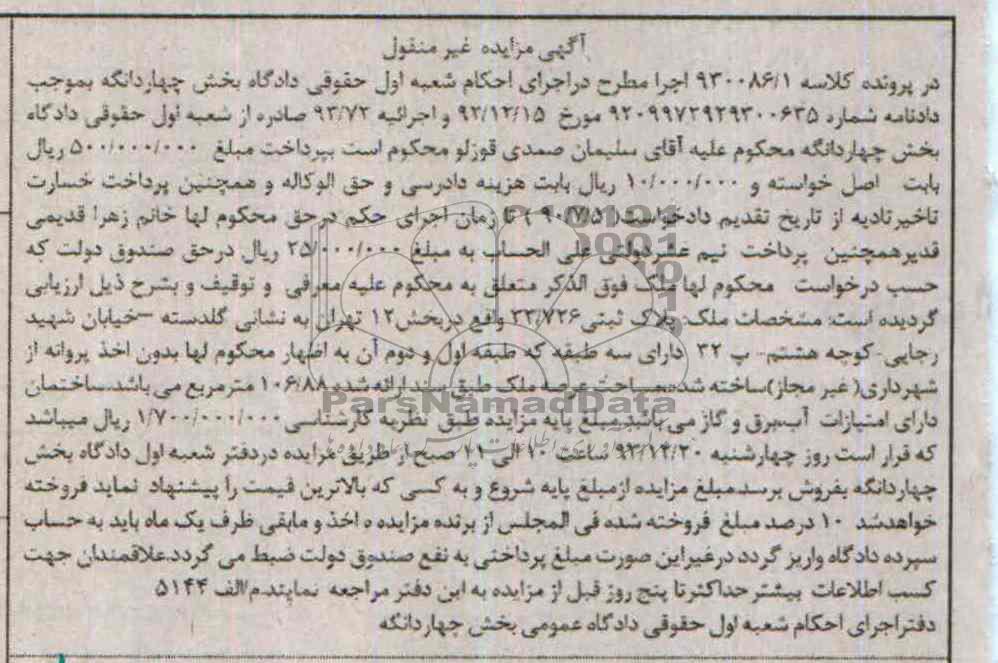 آگهی مزایده غیر منقول
در پرونده کلاسه ۹۳۰۰۸۶/۱ اجرا مطرح دراجرای احکام شعبه اول حقوقی دادگاه بخش چهاردانگه بموجب
دادنامه شماره ۹۲۰۹۹۷۲۹۲۹۳۰۰۶۳۵ مورخ ۹۲/۱۲/۱۵ و اجرائیه ۹۳/۷۳ صادره از شعبه اول حقوقی دادگاه
بخش چهاردانگه محکوم علیه آقای سلیمان صمدی قوزلو محکوم است بپرداخت مبلغ ۵۰۰/۰۰۰/۰۰۰ ریال
بابت اصل خواسته و ۱۰/۰۰۰/۰۰۰ ریال بابت هزینه دادرسی و حق الوکاله و همچنین پرداخت خسارت
تاخیرتادیه از تاریخ تقدیم دادخواست( ۹۰/۷/۵ ) تا زمان اجرای حکم درحق محکوم لها خانم زهرا قدیمی
قدیرهمچنین پرداخت نیم عشردولتی علی الحساب به مبلغ ۲۵/۰۰۰/۰۰۰ ریال درحق صندوق دولت که
حسب درخواست محکوم لها ملک فوق الذکر متعلق به محکوم علیه معرفی و توقیف و بشرح ذیل ارزیابی
گردیده است: مشخصات ملک: پلاک ثبتی ۲۳/۷۲۶ واقع دربخش۱۲ تهران به نشانی گلدسته –خیابان شهید
رجایی- کوچه هشتم- پ ۳۲ دارای سه طبقه که طبقه اول و دوم آن به اظهار محکوم لها بدون اخذ پروانه از
شهرداری( غیر مجاز)ساخته شده،مساحت عرصه ملک طبق سند ارائه شده ۱۰۶/۸۸ مترمربع می باشد.ساختمان
دارای امتیازات آب،برق و گاز می باشد.مبلغ پایه مزایده طبق نظریه کارشناسی۱/۷۰۰/۰۰۰/۰۰۰ ریال میباشد
که قرار است روز چهارشنبه ۹۳/۱۲/۲۰ ساعت ۱۰الی ۱۱ صبح از طریق مزایده دردفتر شعبه اول دادگاه بخش
چهاردانگه بفروش برسد.مبلغ مزایده ازمبلغ پایه شروع و به کسی که بالاترین قیمت را پیشنهاد نماید فروخته
خواهدشد ۱۰ درصد مبلغ فروخته شده فی المجلس از برنده مزایده ه اخذ و مابقی ظرف یک ماه باید به حساب
سپرده دادگاه واریز گردد درغیراین صورت مبلغ پرداختی به نفع صندوق دولت ضبط می گردد.علاقمندان جهت
کسب اطلاعات بیشتر حداکثرتا پنج روز قبل از مزایده به این دفتر مراجعه نمایند.م/الف ۵۱۴۴
دفتراجرای احکام شعبه اول حقوقی دادگاه عمومی بخش چهاردانگه
ParsNamadData